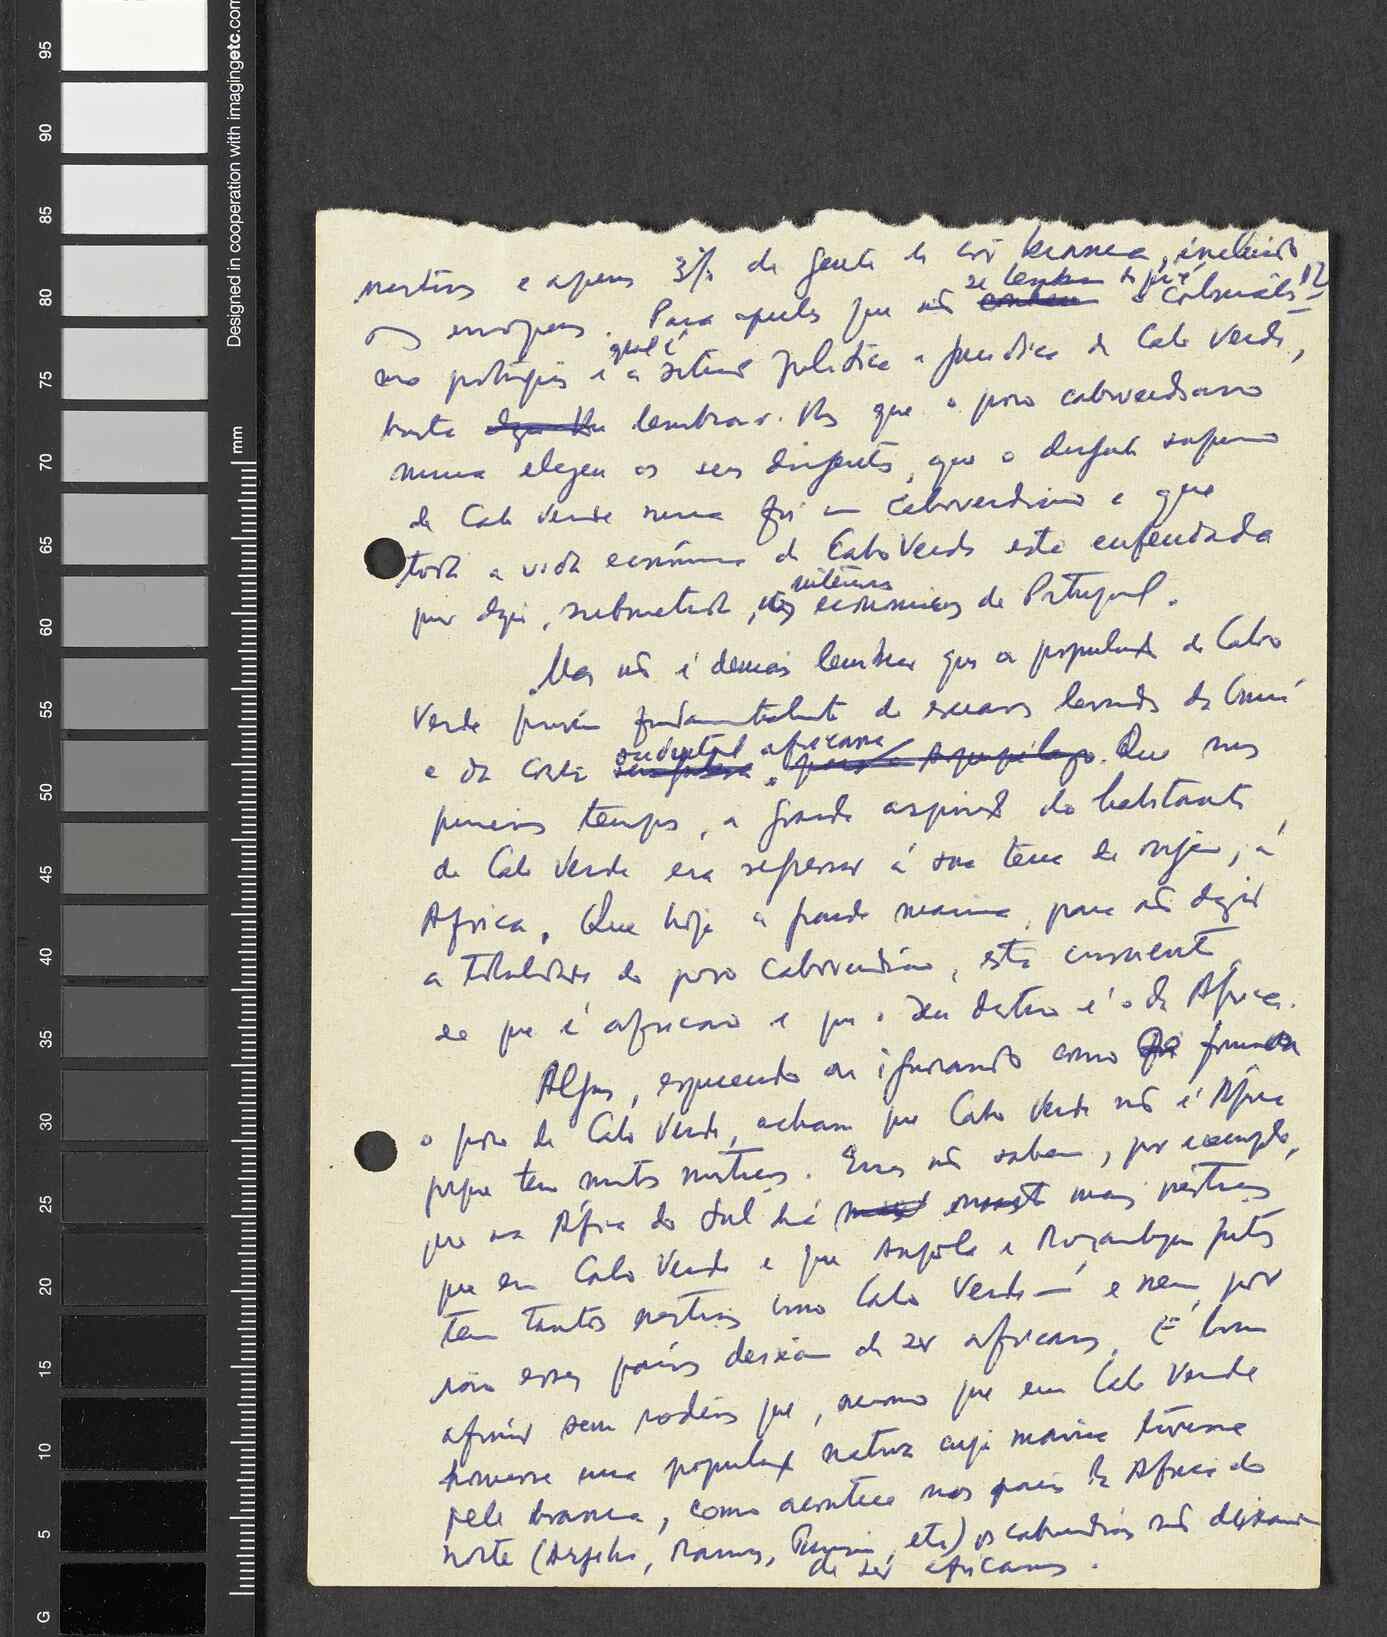 95
90
85
80
75
70
65
60
55
50
45
40
35
30
25
20
15
10
5
G
Designed in cooperation with imagingetc.com
mm
mestiços e apenas 3% de gente de cor branca, incluindo
os europeus. Para aqueles que não se lembram do que é o colonialis-
mo português e qual é a situação política e jurídica de Cabo Verde,
basta lembrar. que o povo caboverdiano
nunca elegeu os seus dirigentes, que o dirigente supremo
de Cabo Verde nunca foi um caboverdiano e que
toda a vida económica de Cabo Verde está enfeudada
por submetida, económicos de Portugal.
Mas não é demais lembrar que a população de Cabo
Verde provém fundamentalmente de escravos levados da Guiné
e da costa ocidental africana. Que nos
primeiros tempos, a grande aspiração do habitante
de Cabo Verde era regressar à sua terra de origem, à
Africa. Que hoje a grande maioria, para não dizer
a totalidade do povo caboverdiano, está consciente
de que é africano e que o seu destino é o da África.
Alguns, esquecendo ou ignorando como foi formado
o povo de Cabo Verde, acham que Cabo Verde não é África
porque tem muitos mestiços. Esses não sabem, por exemplo,
que na África do Sul há mais mestiços
que em Cabo Verde e que Angola e Moçambique juntos
tem tantos mestiços como Cabo Verde — e nem por
isso esses países deixam de ser africanos. É bom
afirmar sem rodeios que, mesmo que em Cabo Verde
houvesse uma população nativa cuja maioria tivesse
pele branca, como acontece nos países da Africa do
norte (Argélia, Marrocos, Tunísia, etc) os caboverdianos não deixariam
de ser africanos.